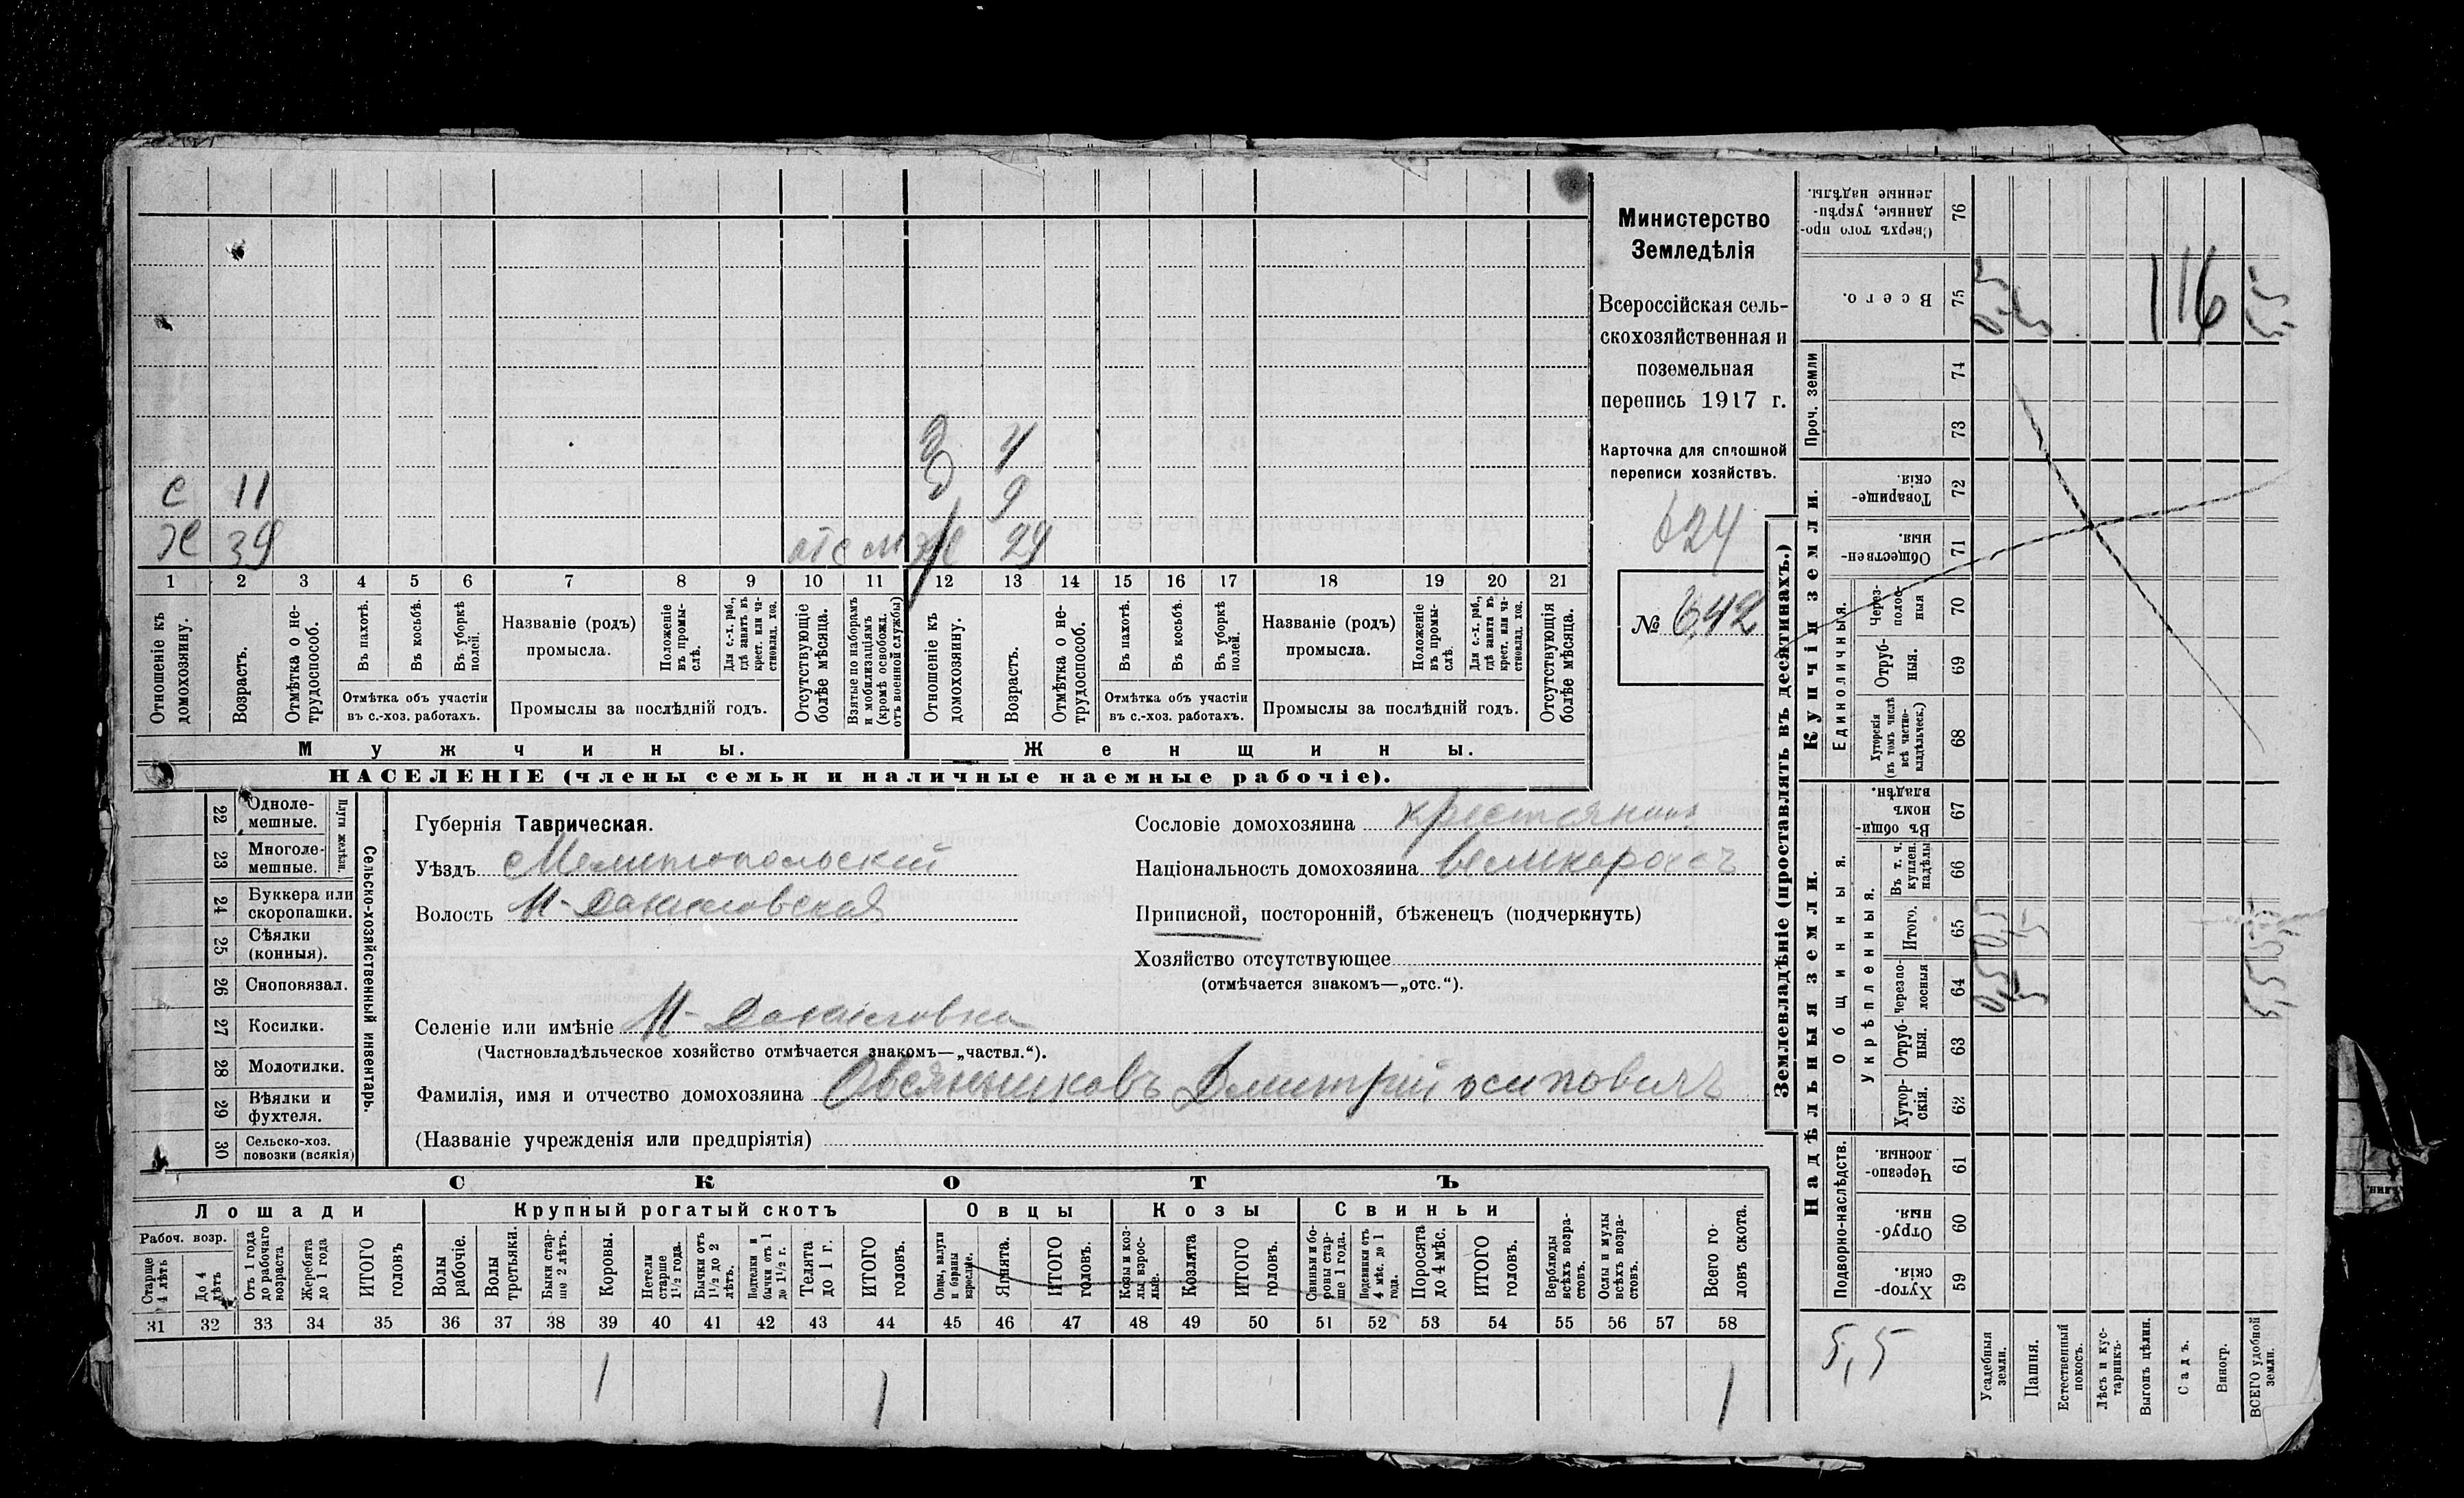 Министерство
Земледѣлія
Всероссійская сель-
скохозяйственная и
поземельная
перепись 1917 г.
Карточка для сплошной
переписи хозяйствъ.
624
№ 642
З 4
С 11 9
Х 39 отс 29
1 2 3 4 5 6 7 8 9 10 11 12 13 14 15 16 17 18 19 20 21
Отношеніе къ домохозяину.
Возрастъ.
Отмѣтка о не-трудоспособ.
Въ пахотѣ.
Въ косьбѣ.
Въ уборкѣ полей.
Отмѣтка объ участіи въ с.-хоз. работахъ.
Названіе (родъ) промысла.
Положеніе въ промы-слѣ.
Для с.-х. раб., гдѣ занятъ въ крест. или ча-стновлад. хоз.
Промыслы за послѣдній годъ.
Отсутствующіе болѣе мѣсяца.
Взятые по наборамъ и мобилизаціямъ (кромѣ освобожд. отъ военной службы)
Отношеніе къ домохозяину.
Возрастъ.
Отмѣтка о не-трудоспособ.
Въ пахотѣ.
Въ косьбѣ.
Въ уборкѣ полей.
Отмѣтка объ участіи въ с.-хоз. работахъ.
Названіе (родъ) промысла.
Положеніе въ промы-слѣ.
Для с.-х. раб., гдѣ занята въ крест. или ча-стновлад. хоз.
Промыслы за послѣдній годъ.
Отсутствующія болѣе мѣсяца.
Мужчины. Женщины.
НАСЕЛЕНІЕ (члены семьи и наличные наемные рабочіе).
Сельско-хозяйственный инвентарь.
Плуги желѣзн.
22 Одноле-мешные.
23 Многоле-мешные.
24 Буккера или скоропашки.
25 Сѣялки (конныя).
26 Сноповязал.
27 Косилки.
28 Молотилки.
29 Вѣялки и фухтеля.
30 Сельско-хоз. повозки (всякія)
Губернія Таврическая.
Уѣздъ Мелитопольскій
Волость М-Даниловская
Сословіе домохозяина крестянинъ
Національность домохозяина великоросъ
Приписной, посторонній, бѣженецъ (подчеркнуть)
Хозяйство отсутствующее
(отмѣчается знакомъ—„отс.“).
Селеніе или имѣніе М-Даниловка
(Частновладѣльческое хозяйство отмѣчается знакомъ—„частвл.“).
Фамилія, имя и отчество домохозяина Овсянниковъ Дмитрий осиповичъ
(Названіе учрежденія или предпріятія)
СКОТЪ
Лошади Крупный рогатый скотъ Овцы Козы Свиньи
Рабоч. возр.
Старще 4 лѣтъ
До 4 лѣтъ
Отъ 1 года до рабочаго возраста
Жеребята до 1 года
ИТОГО головъ
Волы рабочіе.
Волы третьяки.
Быки стар-ше 2 лѣтъ.
Коровы.
Нетели старше 1½ года.
Бычки отъ 1½ до 2 лѣтъ.
Подтелки и бычки отъ 1 до 1½ г.
Телята до 1 г.
ИТОГО головъ.
Овцы, валухи и бараны взрослые.
Ягнята.
ИТОГО головъ.
Козы и коз-лы взрос-лые.
Козлята
ИТОГО головъ.
Свиньи и бо-ровы стар-ше 1 года.
Подсвинки отъ 4 мѣс. до 1 года.
Поросята до 4 мѣс.
ИТОГО головъ.
Верблюды всѣхъ возра-стовъ.
Ослы и мулы всѣхъ возра-стовъ.
Всего го-ловъ скота.
31 32 33 34 35 36 37 38 39 40 41 42 43 44 45 46 47 48 49 50 51 52 53 54 55 56 57 58
1 1 1
Землевладѣніе (проставлять въ десятинахъ.)
Надѣльныя земли. Купчія земли. Проч. земли
Подворно-наслѣдств. Общинныя. Укрѣпленныя. Единоличныя.
Сверхъ того про-данные, укрѣп-ленные надѣлы. 76
Всего. 75
74
73
Товарище-скія. 72
Обществен-ныя. 71
Через-полос-ныя 70
Отруб-ныя. 69
Хуторскія (въ томъ числѣ всѣ частно-владѣльческ.) 68
Въ общин-номъ владѣн. 67
Въ т. ч. куплен. надѣлы 66
Итого. 65
Черезпо-лосныя 64
Отруб-ныя. 63
Хутор-скія. 62
Черезпо-лосныя 61
Отруб-ныя. 60
Хутор-скія. 59
116
5,5
Усадебныя земли.
Пашня.
Естественный покосъ.
Лѣсъ и кус-тарникъ.
Выгонъ цѣлин.
Садъ.
Виногр.
ВСЕГО удобной земли.